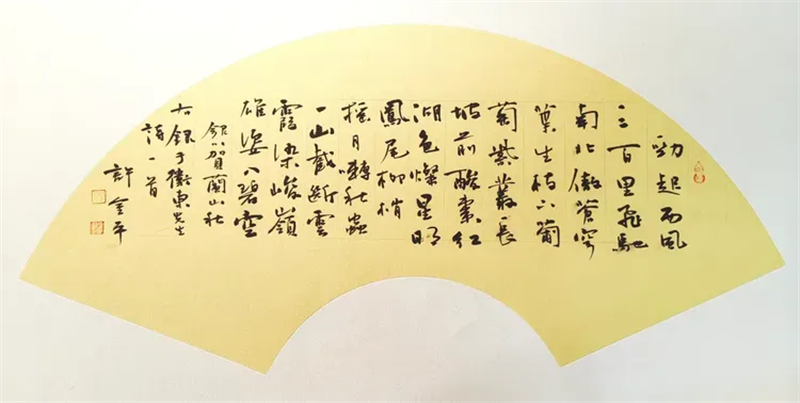 勁起西風
三百里飛馳
南北傲蒼穹
葉生枝下葡
萄紫叢長
坡前酸棗紅
湖色燦星明
鳳尾柳梢
摇月囀秋蟲
一山截断雲
霞染峻嶺
雄姿入碧空
賀蘭山秋
右録于衛東先生
詩一首
許金平